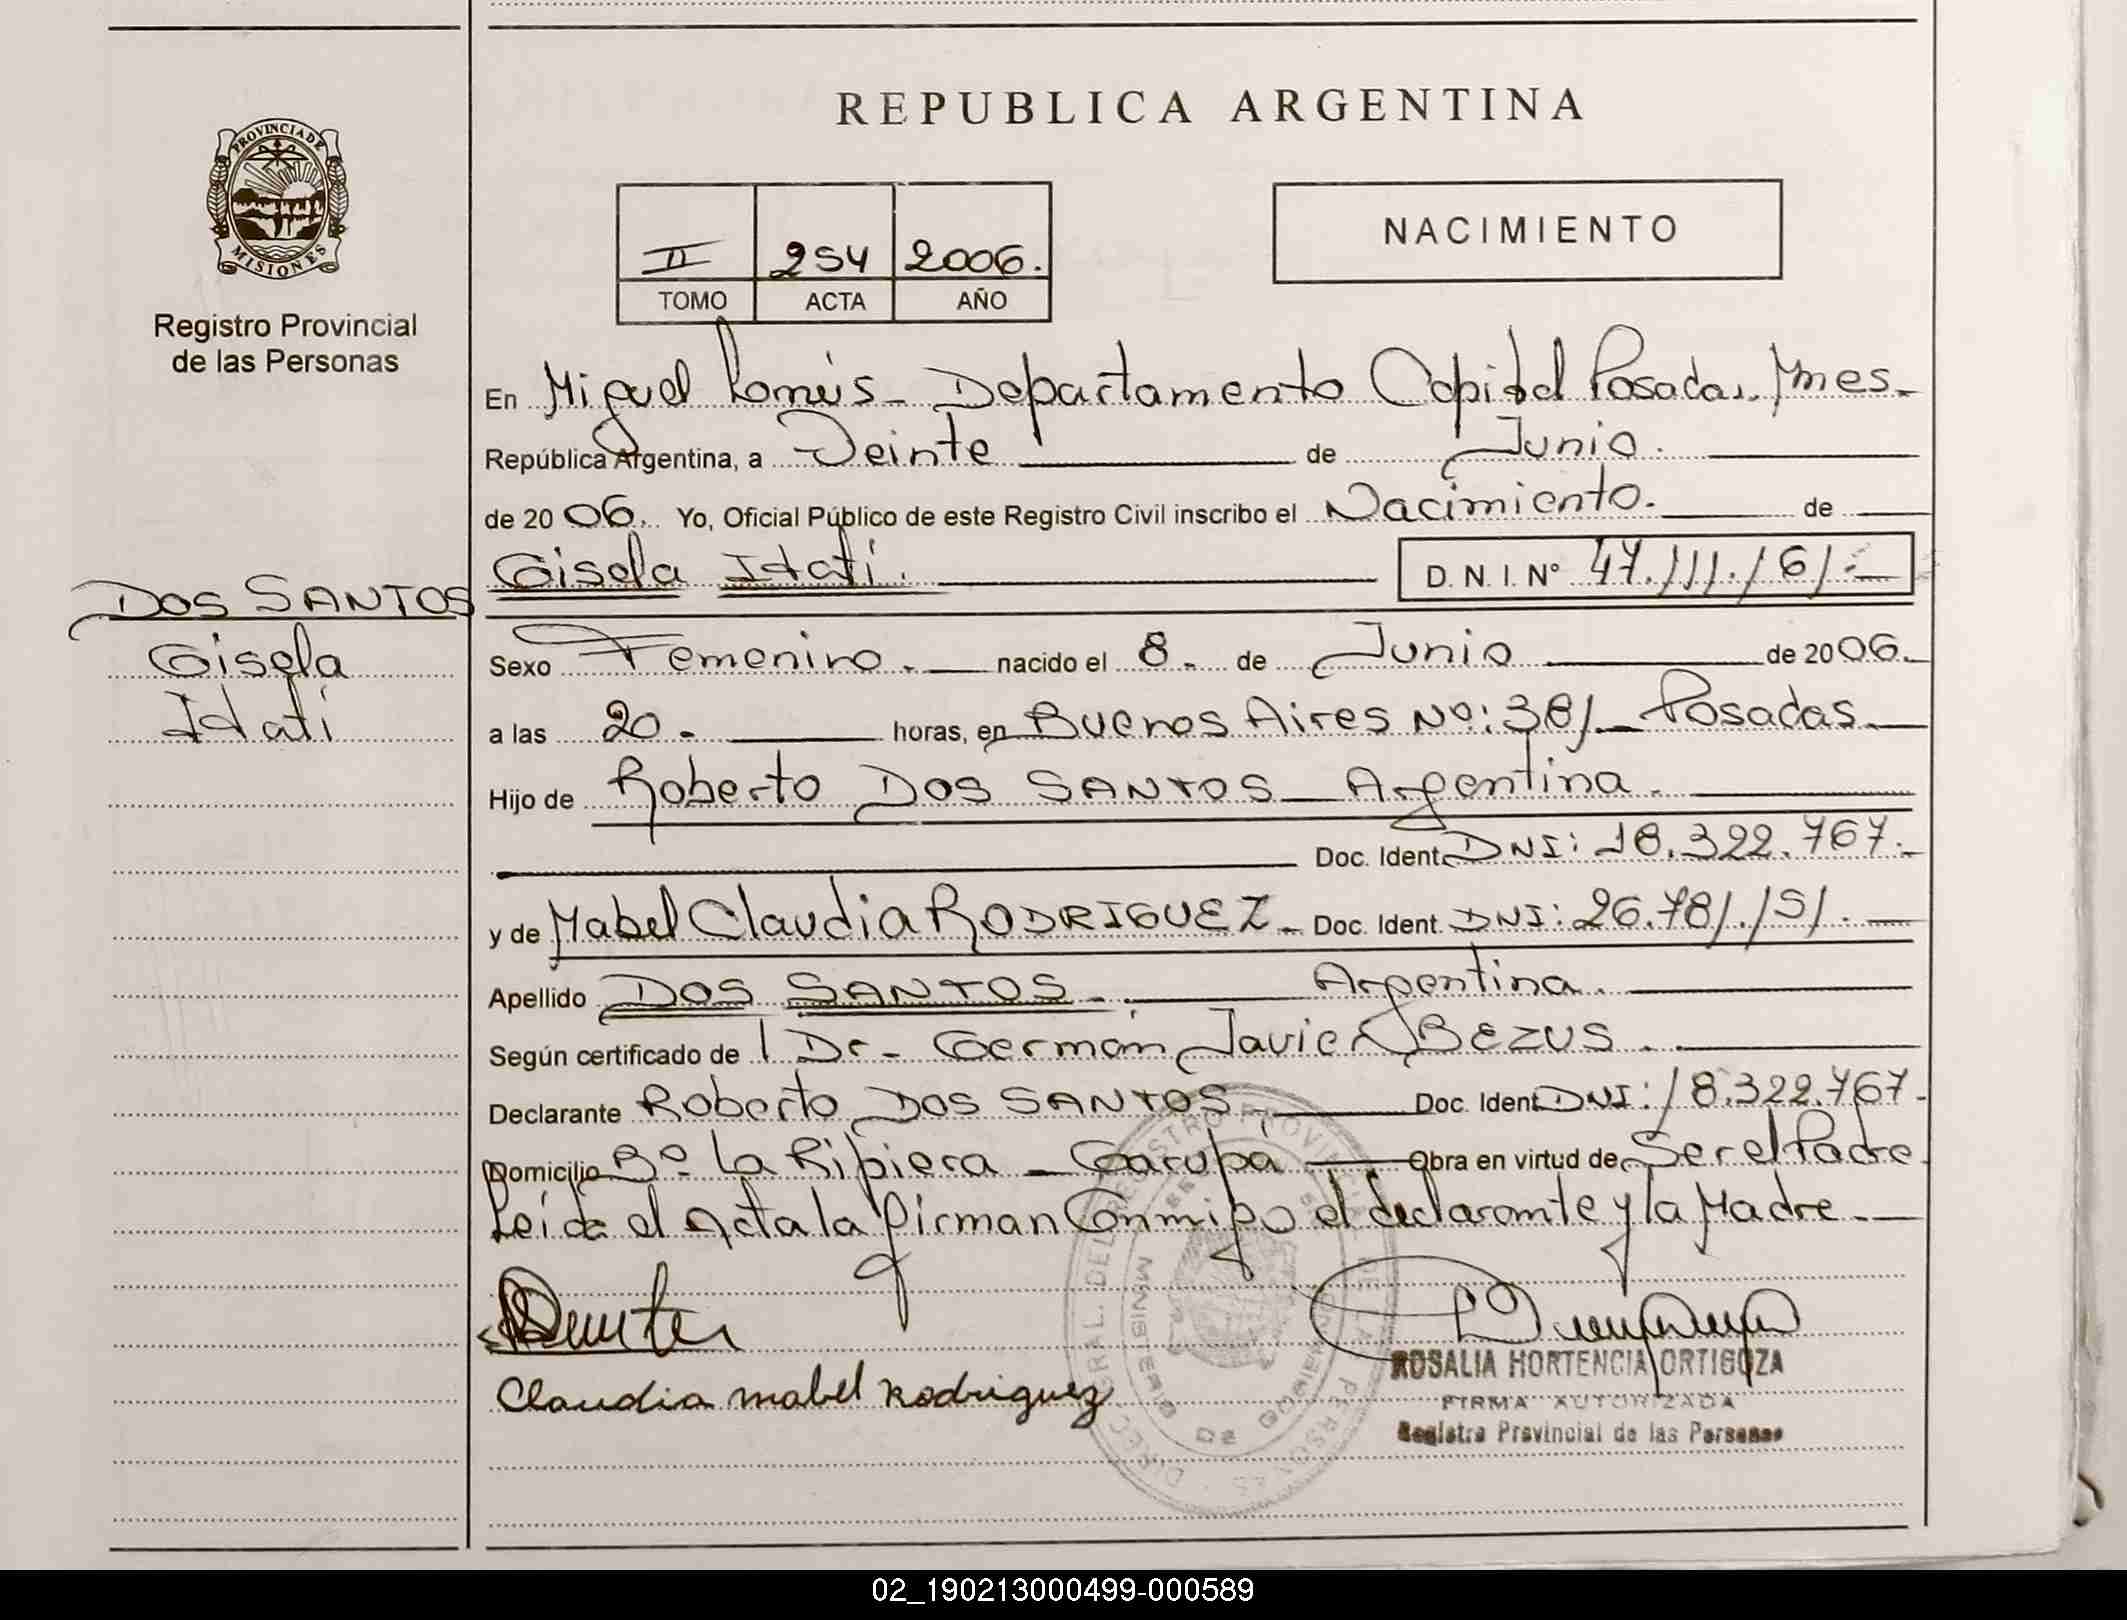 REPUBLICA ARGENTINA
PROVINCIA DE
MISIONES
Registro Provincial
de las Personas
NACIMIENTO
II 254 2006.
TOMO ACTA AÑO
En Miguel Lanús - Departamento Capital Posadas. Mnes.-
República Argentina, a Veinte de Junio.
de 2006. Yo, Oficial Público de este Registro Civil inscribo el Nacimiento. de
Gisela Itatí. D. N. I. Nº 47.111.161.-
DOS SANTOS
Gisela
Itatí
Sexo Femenino. nacido el 8. de Junio de 2006.
a las 20. horas, en Buenos Aires Nº: 381_ Posadas.
Hijo de Roberto DOS SANTOS_ Argentina.
Doc. Ident. DNI: 18.322.767.-
y de Mabel Claudia RODRIGUEZ.- Doc. Ident. DNI: 26.781.151.
Apellido DOS SANTOS.- Argentina.
Según certificado de Dr. Germán Javier BEZUS.
Declarante Roberto DOS SANTOS Doc. Ident DNI: 18.322.767.-
Domicilio Bº La Ribiera _ Garupá Obra en virtud de Ser el Padre
Leída el Acta la firman Conmigo el declarante y la Madre.
Claudia mabel Rodriguez
ROSALIA HORTENCIA ORTIGOZA
FIRMA AUTORIZADA
Registro Provincial de las Personas
02_190213000499-000589